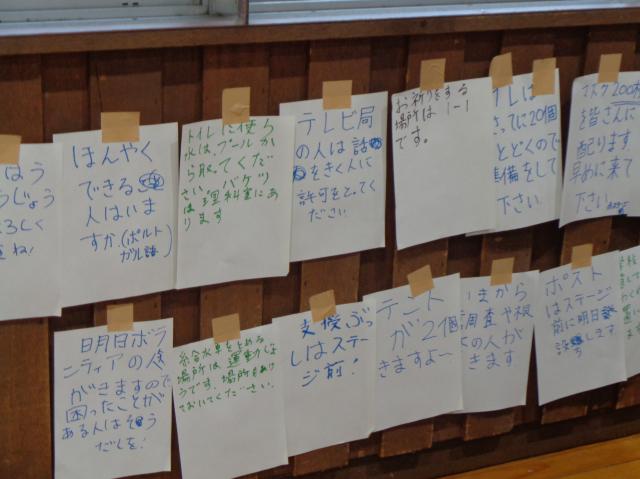 ほんやく
できる
人はいま
すか(ポルト
ガル語)
トイレに使う
水は、プールか
ら取ってくだ
さい。バケツ
は理科室にあ
ります
テレビ局
の人は話
をきく人に
許可をとってく
ださい
お祈りをする
場所は1-1
です。
20個
とどくので
準備をして
下さい
マスク200枚
を皆さんに
配ります
早めに来て
下さい
明日ボラ
ンティアの人
がきますので
困ったことが
ある人はそう
だんを!
給水車をとめる
場所は運動じょ
うです。場所をあけ
ておいてください。
支援ぶっ
しはステー
ジ前!
テント
が2個
きますよ~
まから
調査や
の人が
きます
ポスト
はステージ
前に明日
設ちします